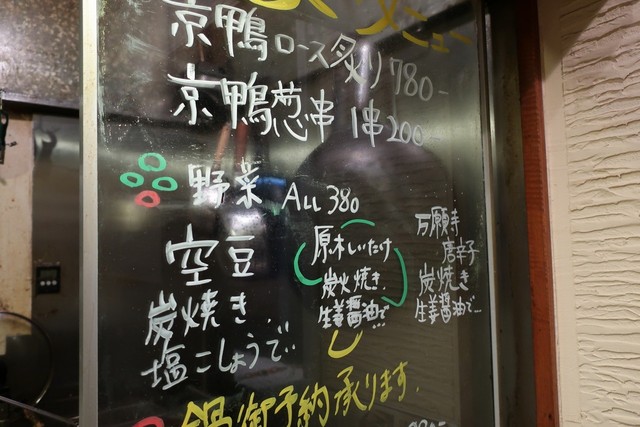 メニュー
京鴨ロース炙り 780-
京鴨葱串 1串200-
野菜 ALL 380
空豆
炭焼き
塩こしょうで…
原木しいたけ
炭火焼き
生姜醤油で…
万願寺
唐辛子
炭焼き
生姜醤油で…
鍋御予約承ります.